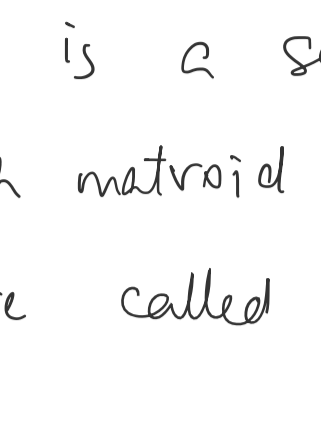 is a
matroid
called